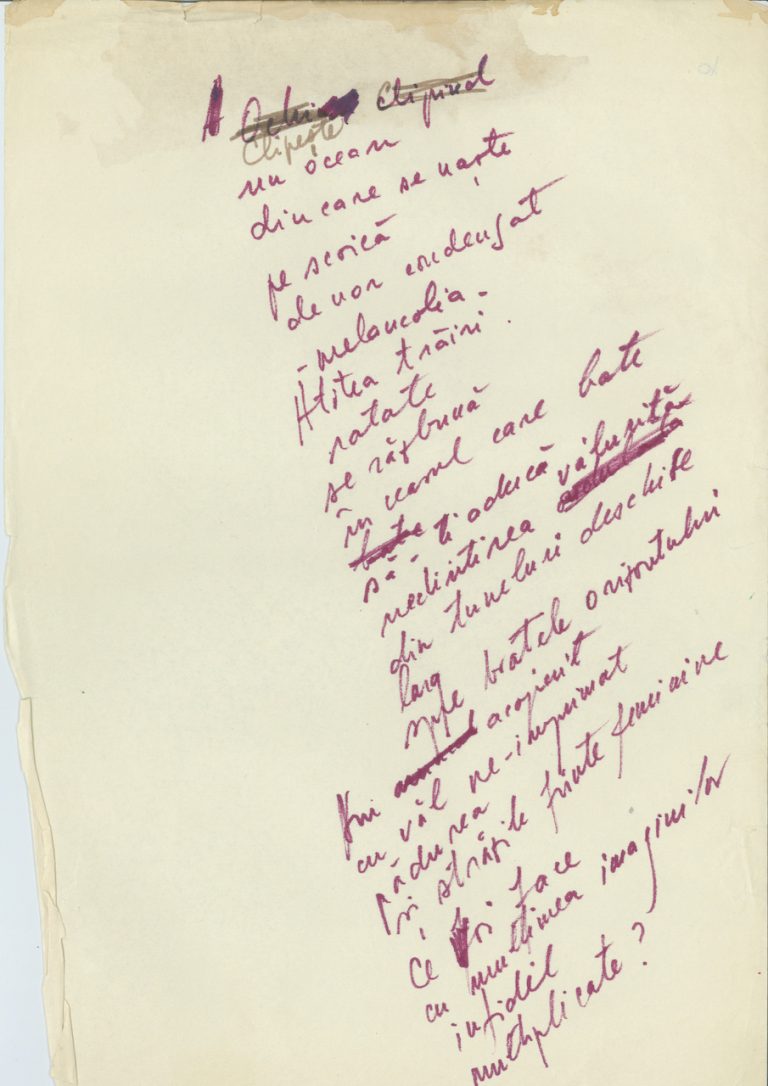 A Ochi clipind
Clipește
un ocean
din care se naște
pe scoică
de nor condensat
- melancolia -
Atîtea trăiri.
ratate
se răzbună
în vasul care bate
bate
să-ți aducă văluriță
neclintirea
din tuneluri deschise
larg
spre brațele orizontului
Vin acoperit
cu văl ne-imprimat
pădurea
și străzile ființe feminine
Ce voi face
cu mulțimea imaginilor
infidel
multiplicate?